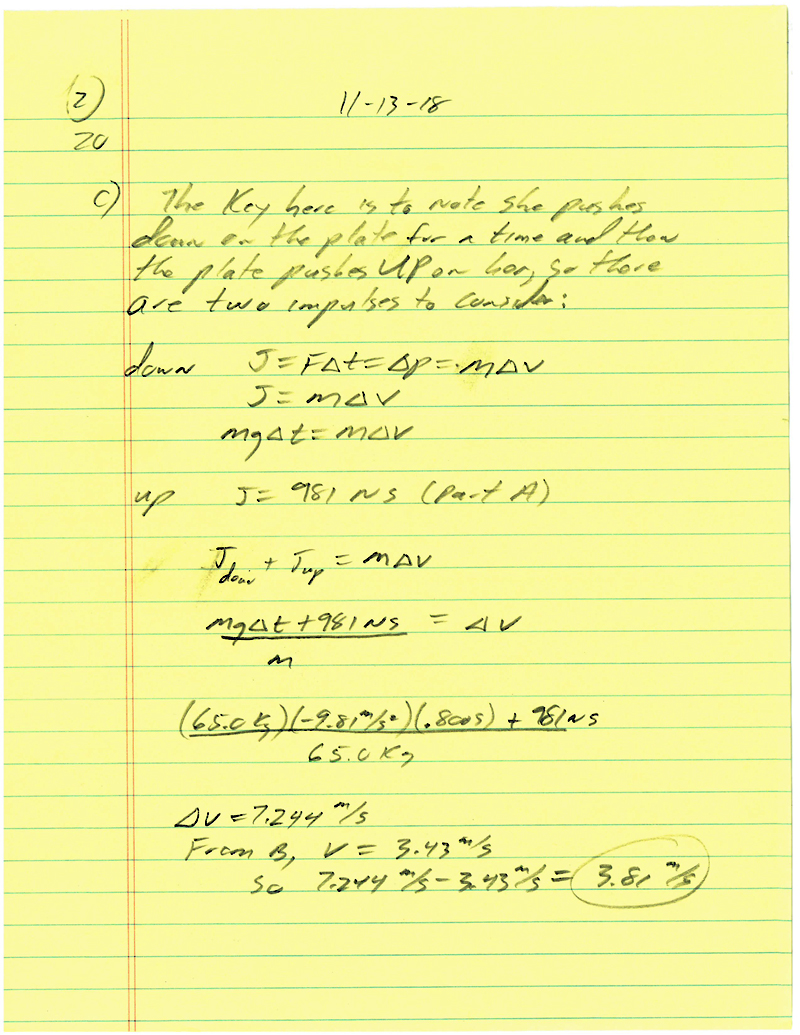 (2) 11-13-18
20
c) The Key here is to note she pushes
down on the plate for a time and then
the plate pushes UP on her, so there
are two impulses to consider:
down J = FΔt = Δp = mΔv
J = mΔv
mgΔt = mΔv
up J = 981 NS (Part A)
J_down + J_up = mΔv
mgΔt + 981 NS = Δv
m
(65.0 Kg)(-9.81 m/s²)(.800s) + 981 NS
65.0 Kg
Δv = 7.244 m/s
From B, v = 3.43 m/s
So 7.244 m/s - 3.43 m/s = 3.81 m/s